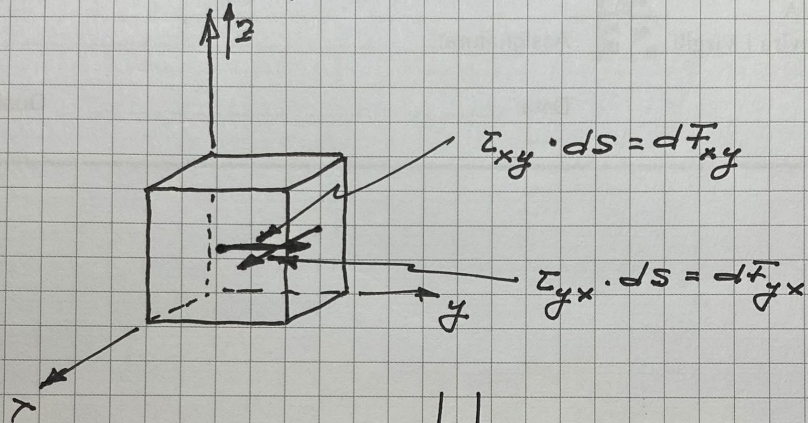 z
τxy · ds = dFxy
τyx · ds = dFyx
y